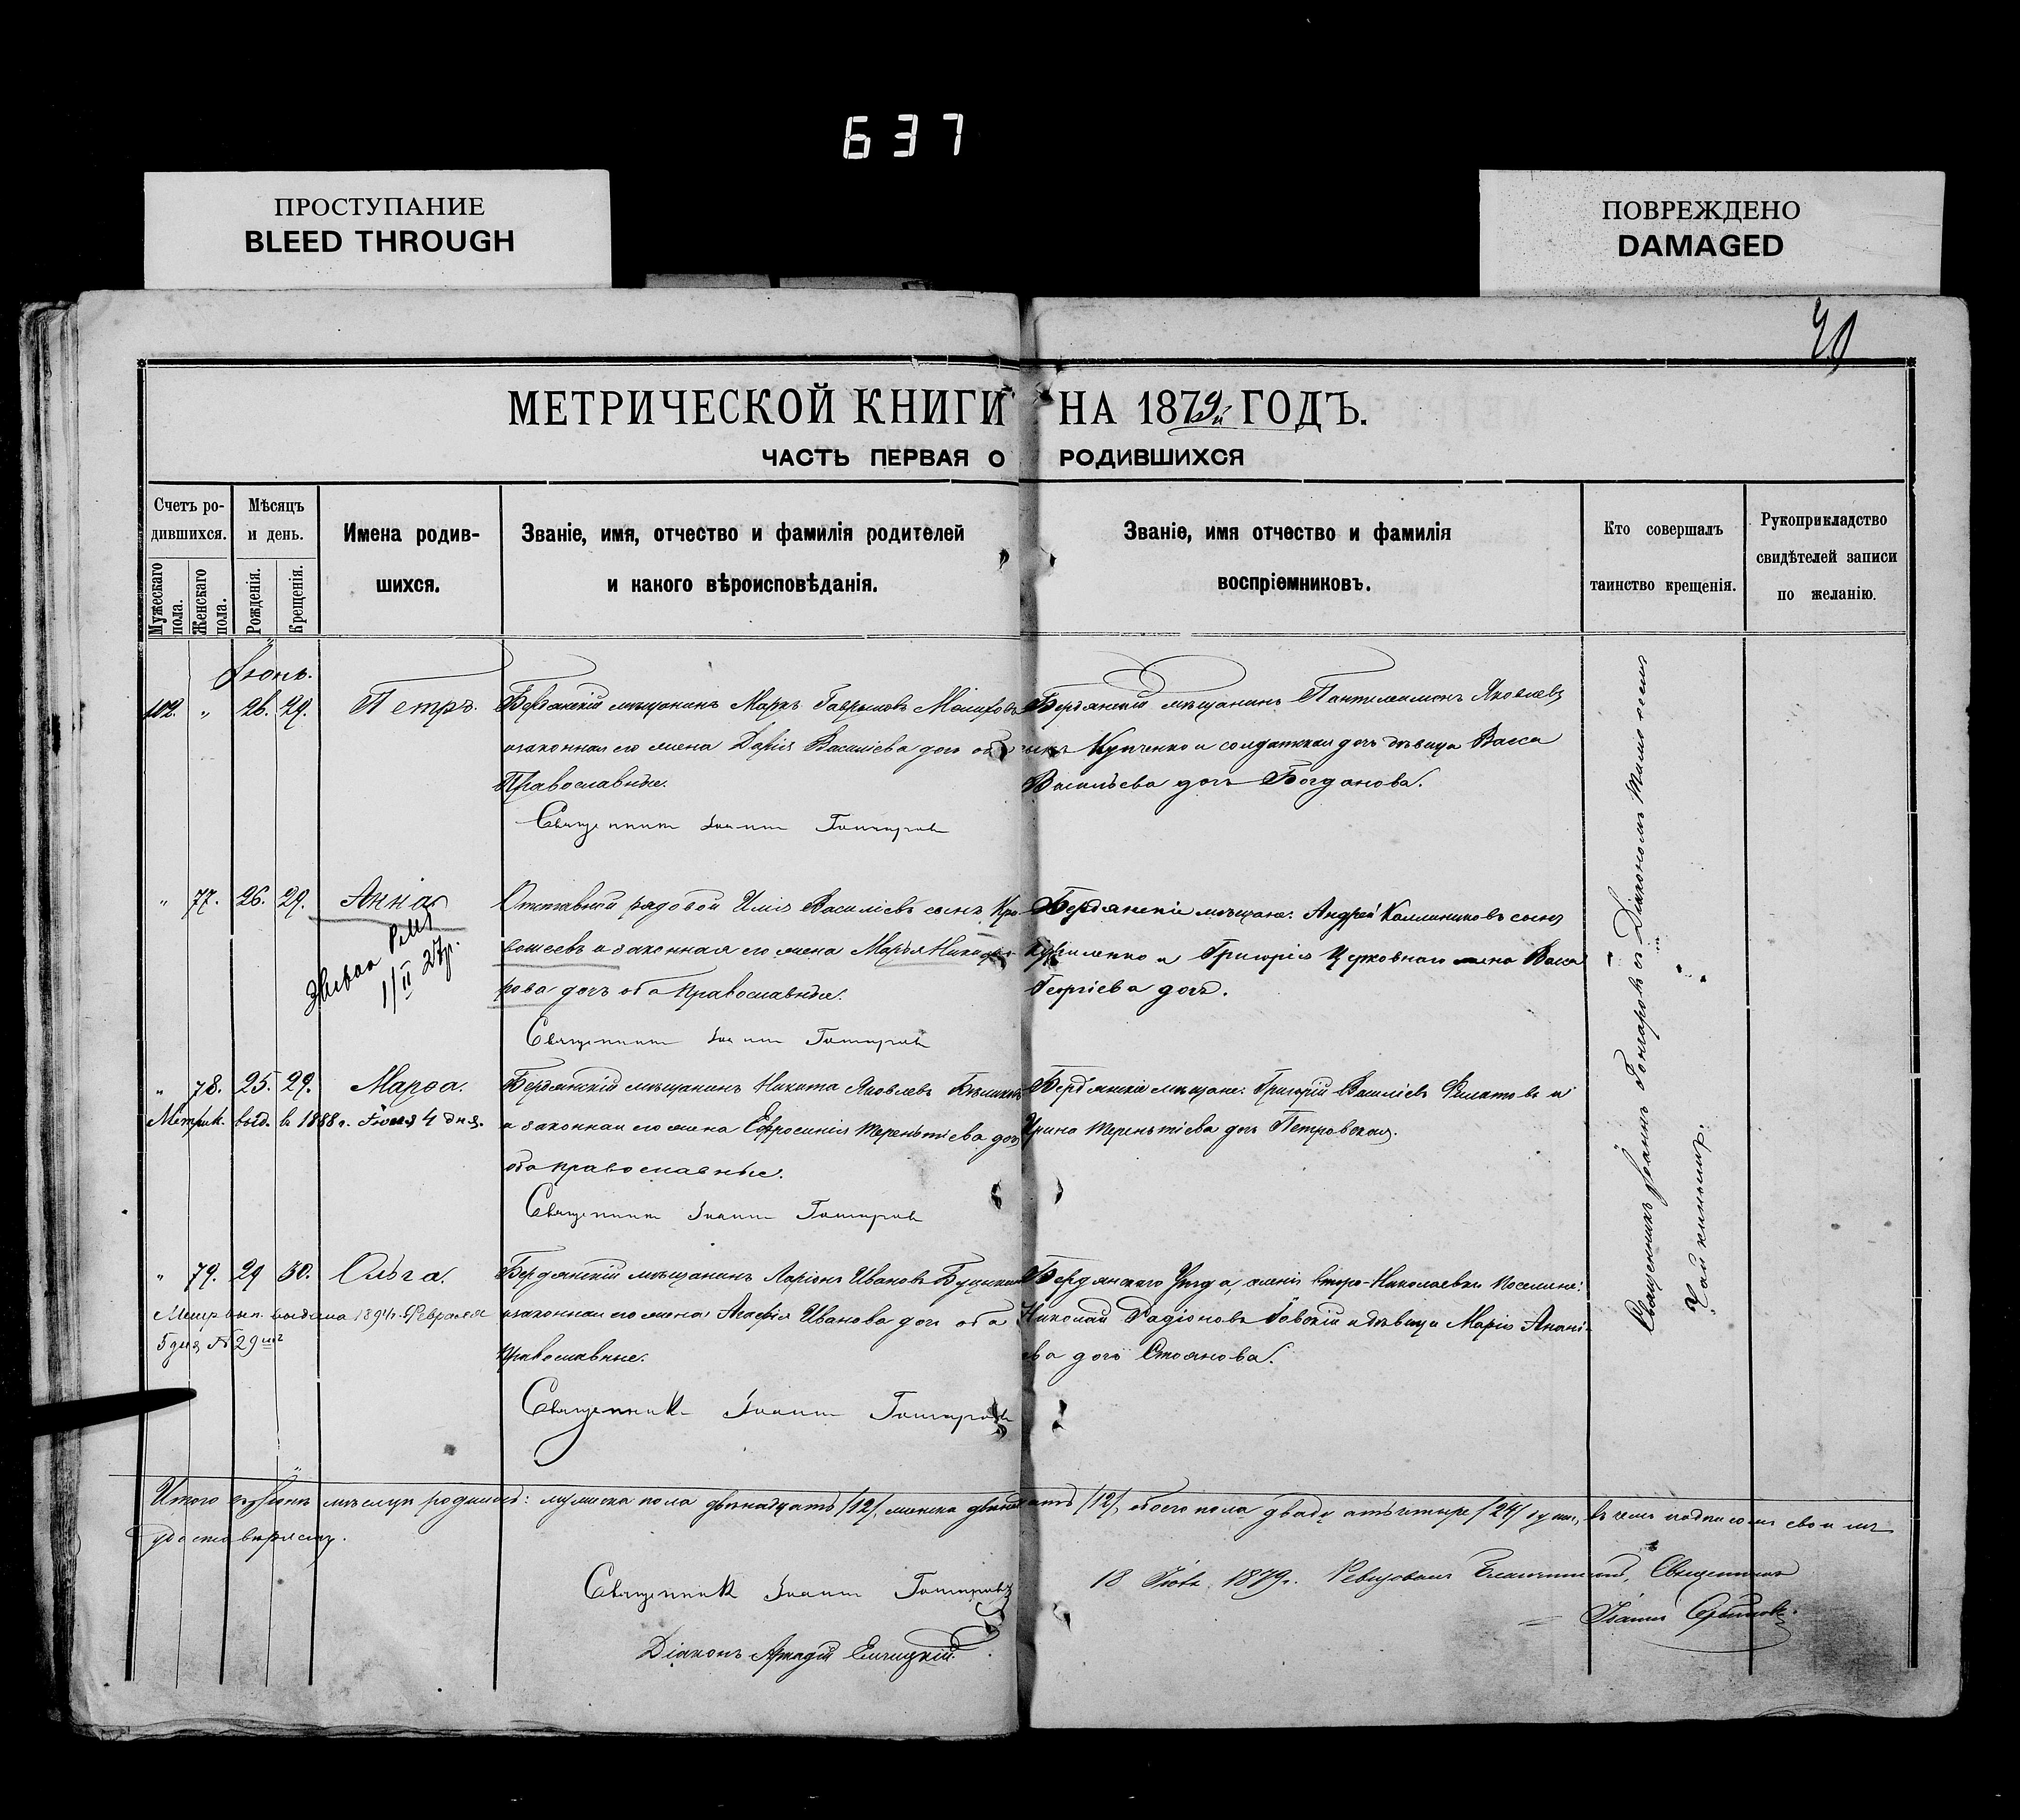 637
ПРОСТУПАНИЕ
BLEED THROUGH
ПОВРЕЖДЕНО
DAMAGED
МЕТРИЧЕСКОЙ КНИГИ НА 1879й ГОДЪ.
ЧАСТЬ ПЕРВАЯ О РОДИВШИХСЯ
Счетъ ро-
дившихся.
Мужескаго
пола.
Женскаго
пола.
Мѣсяцъ
и день.
Рожденія.
Крещенія.
Имена родив-
шихся.
Званіе, имя, отчество и фамилія родителей
и какого вѣроисповѣданія.
Званіе, имя отчество и фамилія
воспріемниковъ.
Кто совершалъ
таинство крещенія.
Рукоприкладство
свидѣтелей записи
по желанію.
Іюнь.
102. " 26. 29. Петръ.
Бердянскій мѣщанинъ Маркъ Гавриловъ
и законная его жена Дарія Василіева дочь оба
Православные.
Священник Іоанн Гончаров
Бердянскій мѣщанинъ Пантилимонъ Яковлевъ
Купченко и солдатская дочь дѣвица Васса
Васильева дочь Богданова.
" 77. 26. 29. Анна
1/II 27г.
Отставной рядовой Илія Василіевъ сынъ Кро-
вошеевъ и законная его жена Марья Никифо-
рова дочь оба Православные.
Священник Іоанн Гончаров
Бердянскіе мѣщане: Андрей Каллиниковъ сынъ
и Григорія Церковнаго жена Васса
Георгіева дочь.
" 78. 25. 29. Марѳа.
Метрик. выд. в 1888г. Іюня 4 дня.
Бердянскій мѣщанинъ Никита Яковлевъ
и законная его жена Евфросинія Терентіева дочь
оба православные.
Священник Іоанн Гончаров
Бердянскіе мѣщане: Григорій Василіевъ Филатовъ и
Ирина Терентіева дочь Петровская.
" 79. 29 30. Ольга.
Метр. вып. выдана 1894г. Февраля
5 дня № 29
Бердянскій мѣщанинъ Ларіонъ Ивановъ
и законная его жена Агафія Иванова дочь оба
Православные.
Священник Іоанн Гончаров
Бердянскаго Уѣзда, Николаевки поселяне:
Николай Радіоновъ и дѣвица Марія Анані-
ева дочь Стоянова.
Священникъ Іоаннъ Гончаровъ съ Діакономъ
Итого въ Іюнѣ мѣсяцѣ родилось: мужеска пола двѣнадцать /12/, женска двѣнадцать /12/, обоего пола двадцать четыре /24/ душъ, въ чемъ подписомъ своимъ
удостовѣряемъ.
Священник Іоанн Гончаровъ
Діаконъ Аркадій
18 Іюля 1879г. Ревизовалъ Благочинный, Священникъ
Іоаннъ